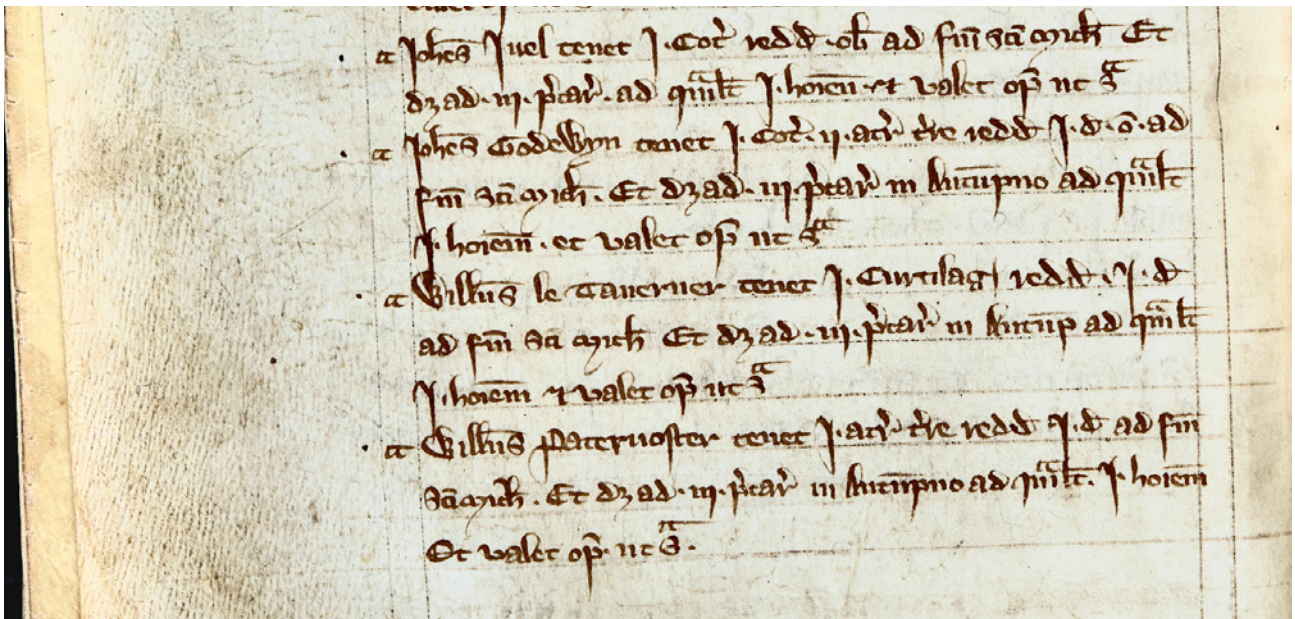 a Joh̄es Juel tenet .j. Cot̉ redd̛ .ob̄ ad fm̄ sc̄i Mich̄ Et
dȝ ad .iij. p̉car̉ . ad qᵃmlt̄ .j. hoīem . ⁊ valet op̄ ut sᵃ
a Joh̄es Godewyn tenet .j. Cot̉ . ij . acr̉ t̉re redd̛ .j. d̛ . ō . ad
fm̄ sc̄i Mich̄ . Et dȝ ad . iij . p̉car̉ in Autūpno ad qᵃmlt̄
.j. hoīem . et valet op̄ ut sᵃ
a Will̄ms le Tauerner tenet .j. Curtilag̛ redd̛ . .j. d̛
ad fm̄ sc̄i Mich̄ Et dȝ ad . iij . p̉car̉ in Autūp ad qᵃmlt̄
.j. hoīem ⁊ valet op̄ ut sᵃ
a Will̄ms Paternoster tenet .j. acr̉ t̉re redd̛ .j. d̛ ad fm̄
sc̄i Mich̄ . Et dȝ ad . iij . p̉car̉ in Autūpno ad qᵃmlt̄ . .j. hoīem
Et valet op̄ . ut sᵃ .